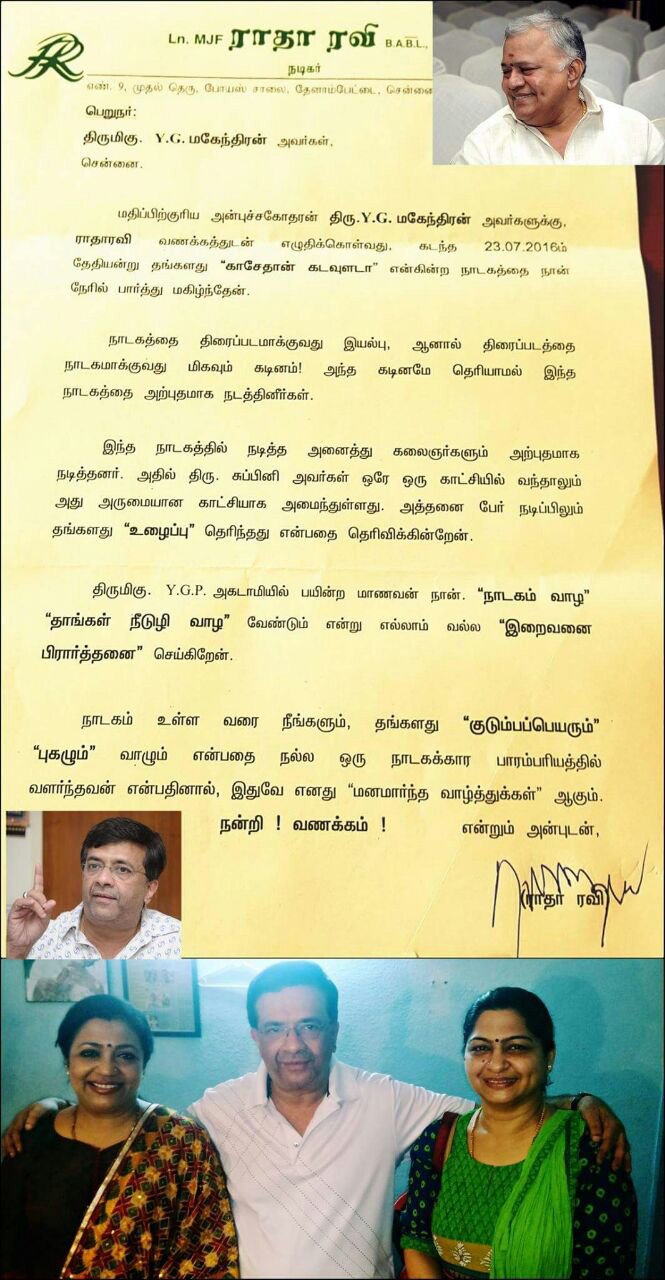 Ln. MJF ராதா ரவி B.A.B.L.,
நடிகர்
எண். 9, முதல் தெரு, போயஸ் சாலை, தேனாம்பேட்டை, சென்னை
பெறுநர்:
திருமிகு. Y.G. மகேந்திரன் அவர்கள்,
சென்னை.
மதிப்பிற்குரிய அன்புச்சகோதரன் திரு.Y.G. மகேந்திரன் அவர்களுக்கு,
ராதாரவி வணக்கத்துடன் எழுதிக்கொள்வது, கடந்த 23.07.2016ம்
தேதியன்று தங்களது “காசேதான் கடவுளடா” என்கின்ற நாடகத்தை நான்
நேரில் பார்த்து மகிழ்ந்தேன்.
நாடகத்தை திரைப்படமாக்குவது இயல்பு, ஆனால் திரைப்படத்தை
நாடகமாக்குவது மிகவும் கடினம்! அந்த கடினமே தெரியாமல் இந்த
நாடகத்தை அற்புதமாக நடத்தினீர்கள்.
இந்த நாடகத்தில் நடித்த அனைத்து கலைஞர்களும் அற்புதமாக
நடித்தனர். அதில் திரு. சுப்பினி அவர்கள் ஒரே ஒரு காட்சியில் வந்தாலும்
அது அருமையான காட்சியாக அமைந்துள்ளது. அத்தனை பேர் நடிப்பிலும்
தங்களது “உழைப்பு” தெரிந்தது என்பதை தெரிவிக்கின்றேன்.
திருமிகு. Y.G.P. அகடாமியில் பயின்ற மாணவன் நான். “நாடகம் வாழ”
“தாங்கள் நீடுழி வாழ” வேண்டும் என்று எல்லாம் வல்ல “இறைவனை
பிரார்த்தனை” செய்கிறேன்.
நாடகம் உள்ள வரை நீங்களும், தங்களது “குடும்பப்பெயரும்”
“புகழும்” வாழும் என்பதை நல்ல ஒரு நாடகக்கார பாரம்பரியத்தில்
வளர்ந்தவன் என்பதினால், இதுவே எனது “மனமார்ந்த வாழ்த்துக்கள்” ஆகும்.
நன்றி ! வணக்கம் ! என்றும் அன்புடன்,
(ராதா ரவி)